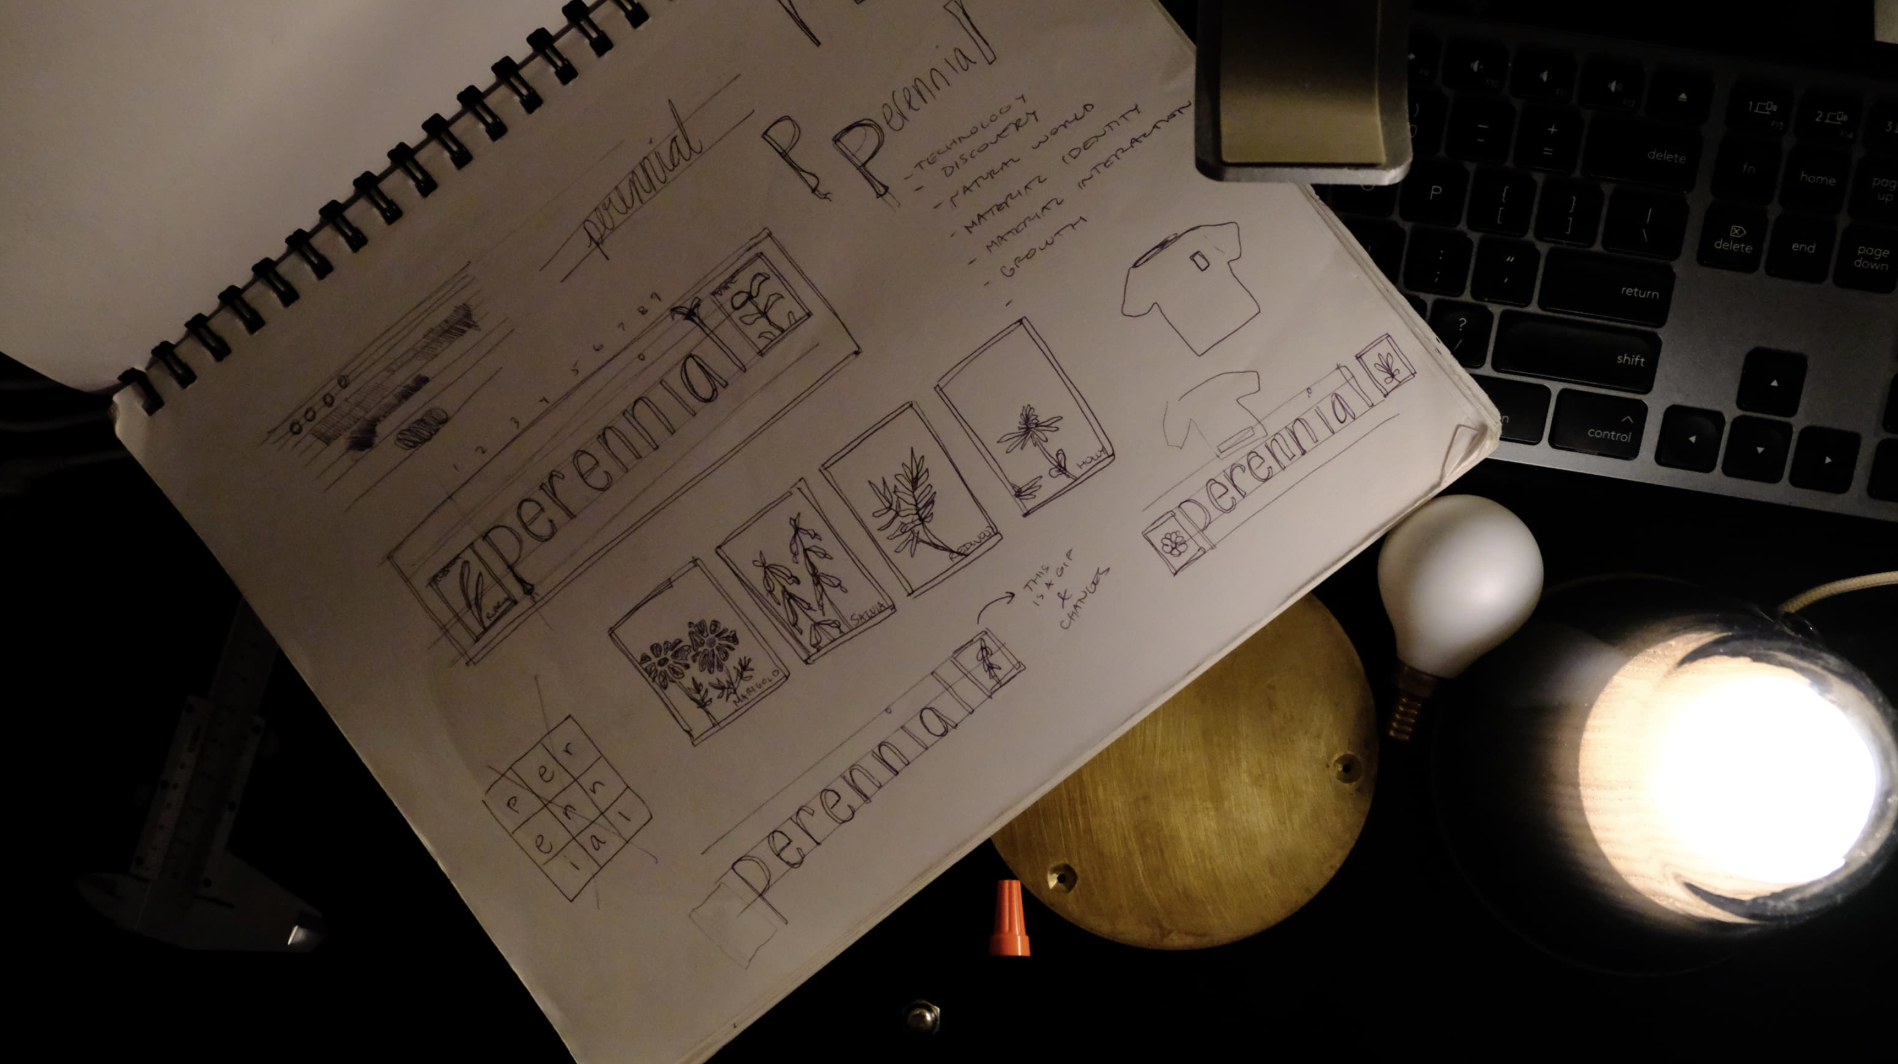 Perennial
P
perennial
- TECHNOLOGY
- DISCOVERY
- NATURAL WORLD
- MATERIAL IDENTITY
- MATERIAL INTERACTION
- GROWTH
-
1 2 3 4 5 6 7 8 9
perennial
MARIGOLD
SALVIA
REDWOOD
HOLLY
perennial
perennial
THIS
IS A GIF
&
CHANGES
p e r
e n n
i a l
delete
fn
home
page
up
P
{
[
}
]
|
\
delete
end
page
down
:
;
"
'
return
?
/
shift
control
-
+
=